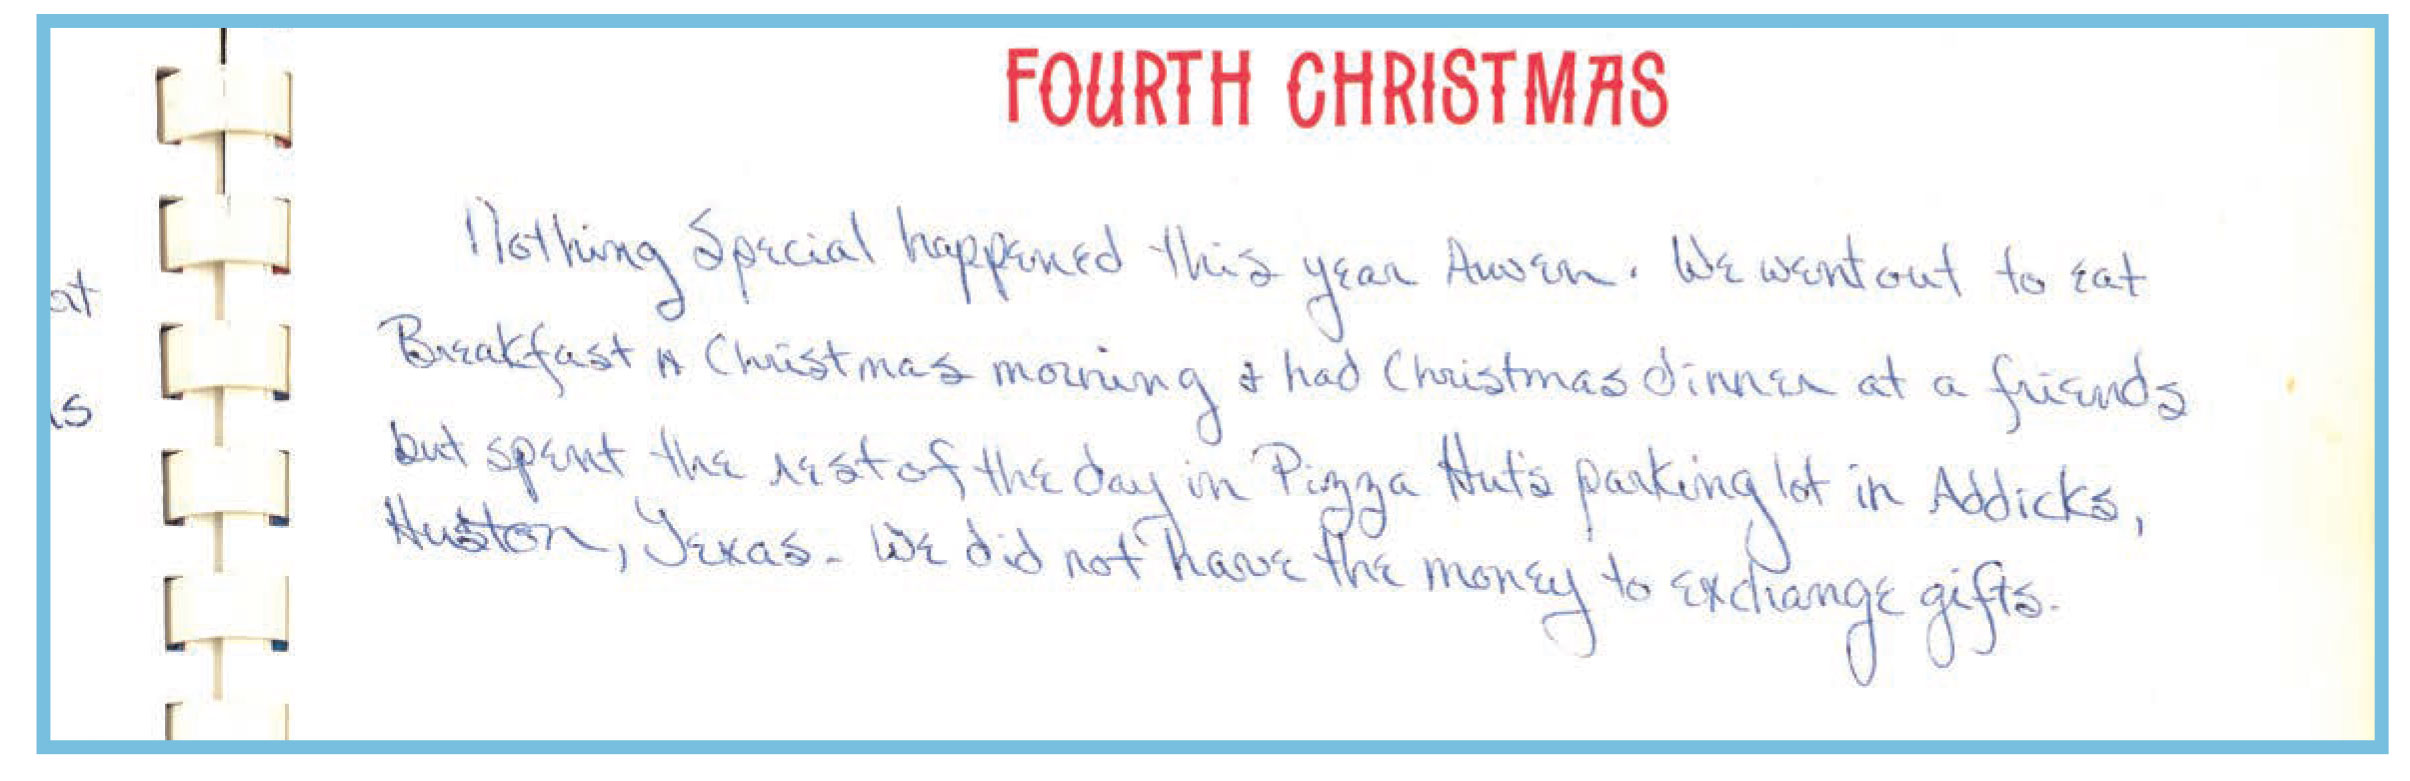 FOURTH CHRISTMAS
Nothing Special happened this year Awen. We went out to eat
at
Breakfast A Christmas morning & had Christmas dinner at a friends
is
but spent the rest of the day in Pizza Hut's parking lot in Addicks,
Huston, Texas. We did not have the money to exchange gifts.